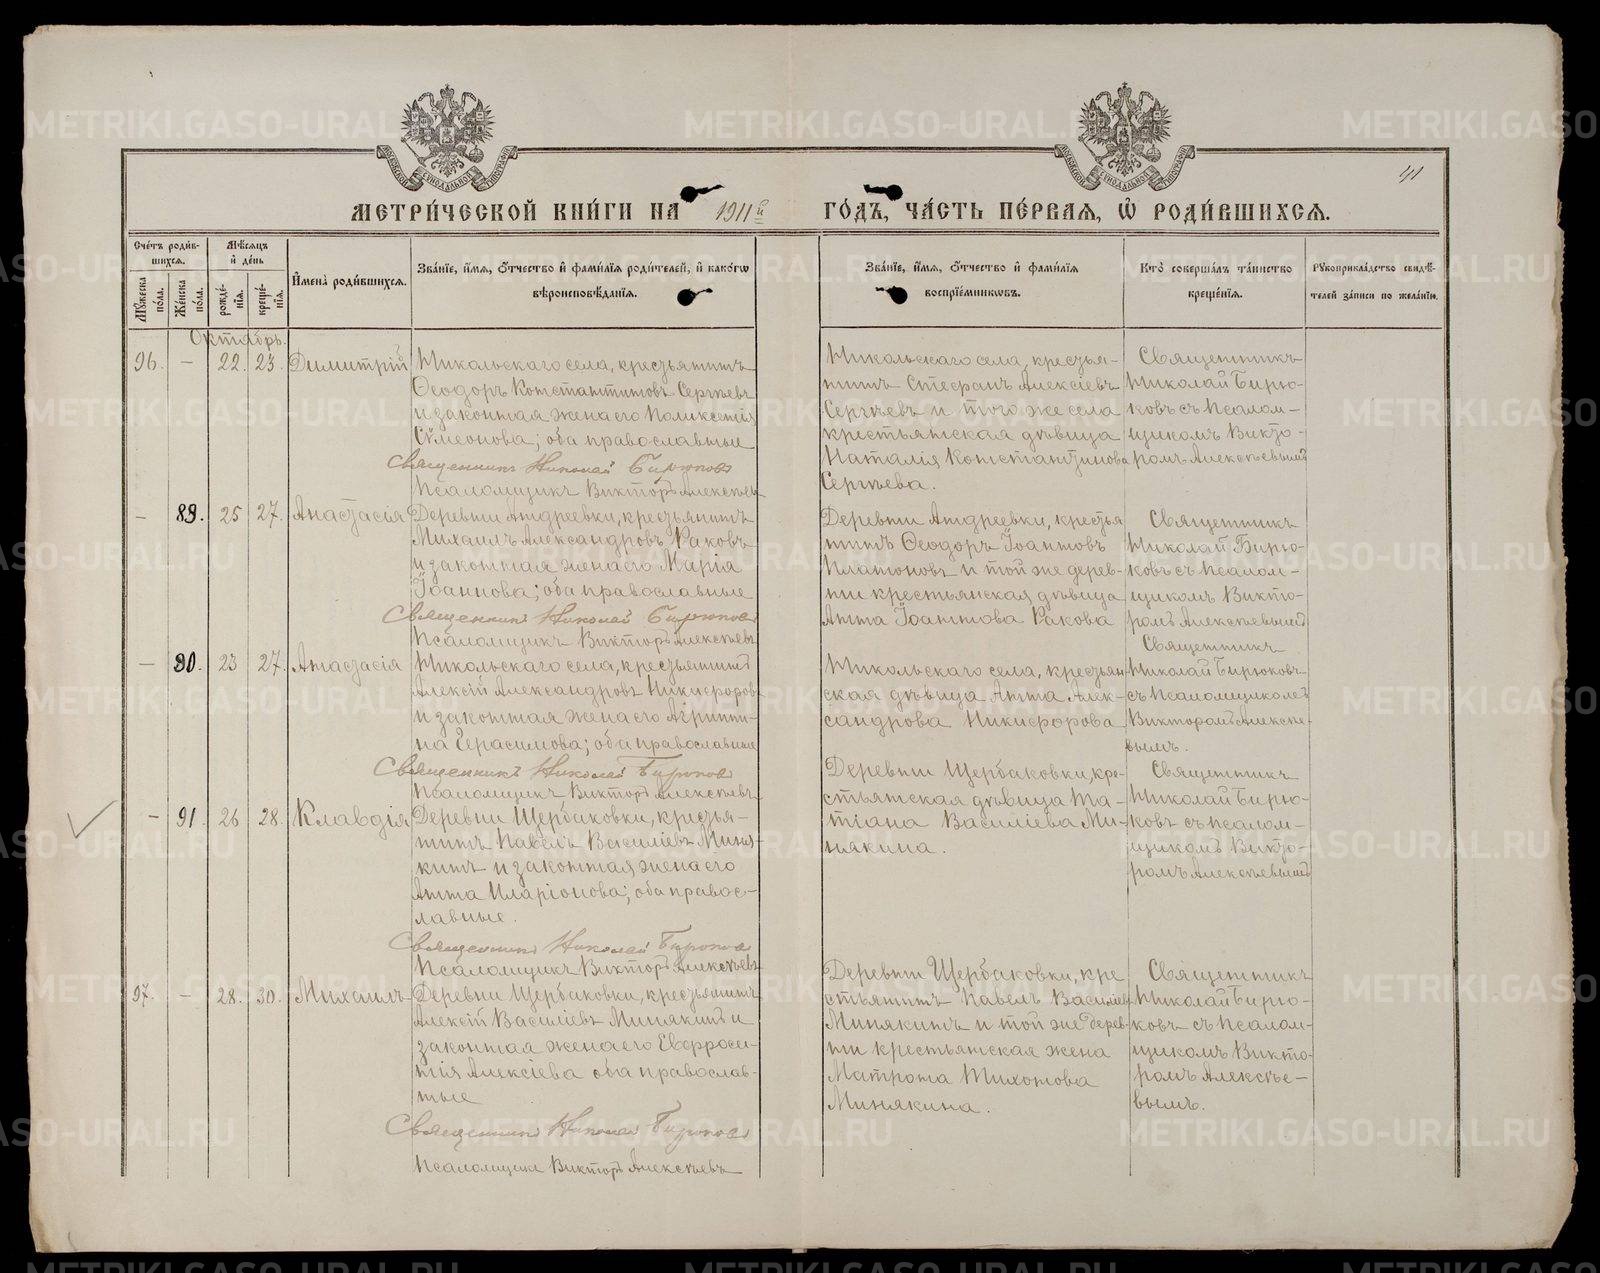 41
МЕТРИ́ЧЕСКОЙ КНИ́ГИ НА 1911й ГО́ДЪ, ЧА́СТЬ ПЕ́РВАЯ, Ѡ РОДИ́ВШИХСЯ.
Сче́тъ роди́в-
шихся.
Мѣ́сяцъ
и҆ де́нь
Мꙋ́жеска
по́ла.
Же́нска
по́ла.
рожде́-
нїѧ.
креще́-
нїѧ.
И҆мена̀ роди́вшихся.
Зва́нїе, и҆́мя, ѻ҆́тчество и҆ фами́лїя роди́телей, и҆ како́гѡ
вѣроисповѣ́данїя.
Зва́нїе, и҆́мя, ѻ҆́тчество и҆ фами́лїя
воспрїе́мникѡвъ.
Кто̀ соверша́лъ та́инство
креще́нїя.
Рꙋкоприкла́дство свидѣ́-
телей за́писи по жела́нїю.
Октябрь.
96. – 22. 23. Димитрій
Никольскаго села, крестьянинъ
Ѳеодоръ Константиновъ Сергѣевъ
и законная жена его Поликсенія
Сѵмеонова; оба православные
Священникъ Николай Бирюковъ
Псаломщикъ Викторъ Алексѣевъ
Никольскаго села, крестья-
нинъ Стефанъ Алексіевъ
Сергѣевъ и того же села
крестьянская дѣвица
Наталія Константинова
Сергѣева.
Священникъ
Николай Бирю-
ковъ съ псалом-
щикомъ Викто-
ромъ Алексѣевымъ
– 89. 25 27. Анастасія
Деревни Андреевки, крестьянинъ
Михаилъ Александровъ Раковъ
и законная жена его Марія
Іоаннова; оба православные
Священникъ Николай Бирюковъ
Псаломщикъ Викторъ Алексѣевъ
Деревни Андреевки, крестья
нинъ Ѳеодоръ Іоанновъ
Платоновъ и той же дерев-
ни крестьянская дѣвица
Анна Іоаннова Ракова
Священникъ
Николай Бирю-
ковъ съ псалом-
щикомъ Викто-
ромъ Алексѣевымъ
– 90. 23 27. Анастасія
Никольскаго села, крестьянинъ
Алексій Александровъ Никифоровъ
и законная жена его Агриппи-
на Герасимова; оба православные
Священникъ Николай Бирюковъ
Псаломщикъ Викторъ Алексѣевъ
Никольскаго села, крестьян-
ская дѣвица Анна Алек-
сандрова Никифорова
Священникъ
Николай Бирюковъ
съ псаломщикомъ
Викторомъ Алексѣе-
вымъ.
– 91. 26 28. Клавдія
Деревни Щербаковки, крестья-
нинъ Павелъ Василіевъ Миня-
кинъ и законная жена его
Анна Иларіонова; оба правос-
лавные.
Священникъ Николай Бирюковъ
Псаломщикъ Викторъ Алексѣевъ
Деревни Щербаковки, кре-
стьянская дѣвица Та-
тіана Василіева Ми-
някина.
Священникъ
Николай Бирю-
ковъ съ псалом-
щикомъ Викто-
ромъ Алексѣевымъ
97. – 28. 30. Михаилъ
Деревни Щербаковки, крестьянинъ
Алексій Василіевъ Минякинъ и
законная жена его Евфроси-
нія Алексіева оба православ-
ные
Священникъ Николай Бирюковъ
Псаломщикъ Викторъ Алексѣевъ
Деревни Щербаковки, кре
стьянинъ Павелъ Василіев
Минякинъ и той же дерев-
ни крестьянская жена
Матрона Тихонова
Минякина.
Священникъ
Николай Бирю-
ковъ съ псалом-
щикомъ Викто-
ромъ Алексѣе-
вымъ.